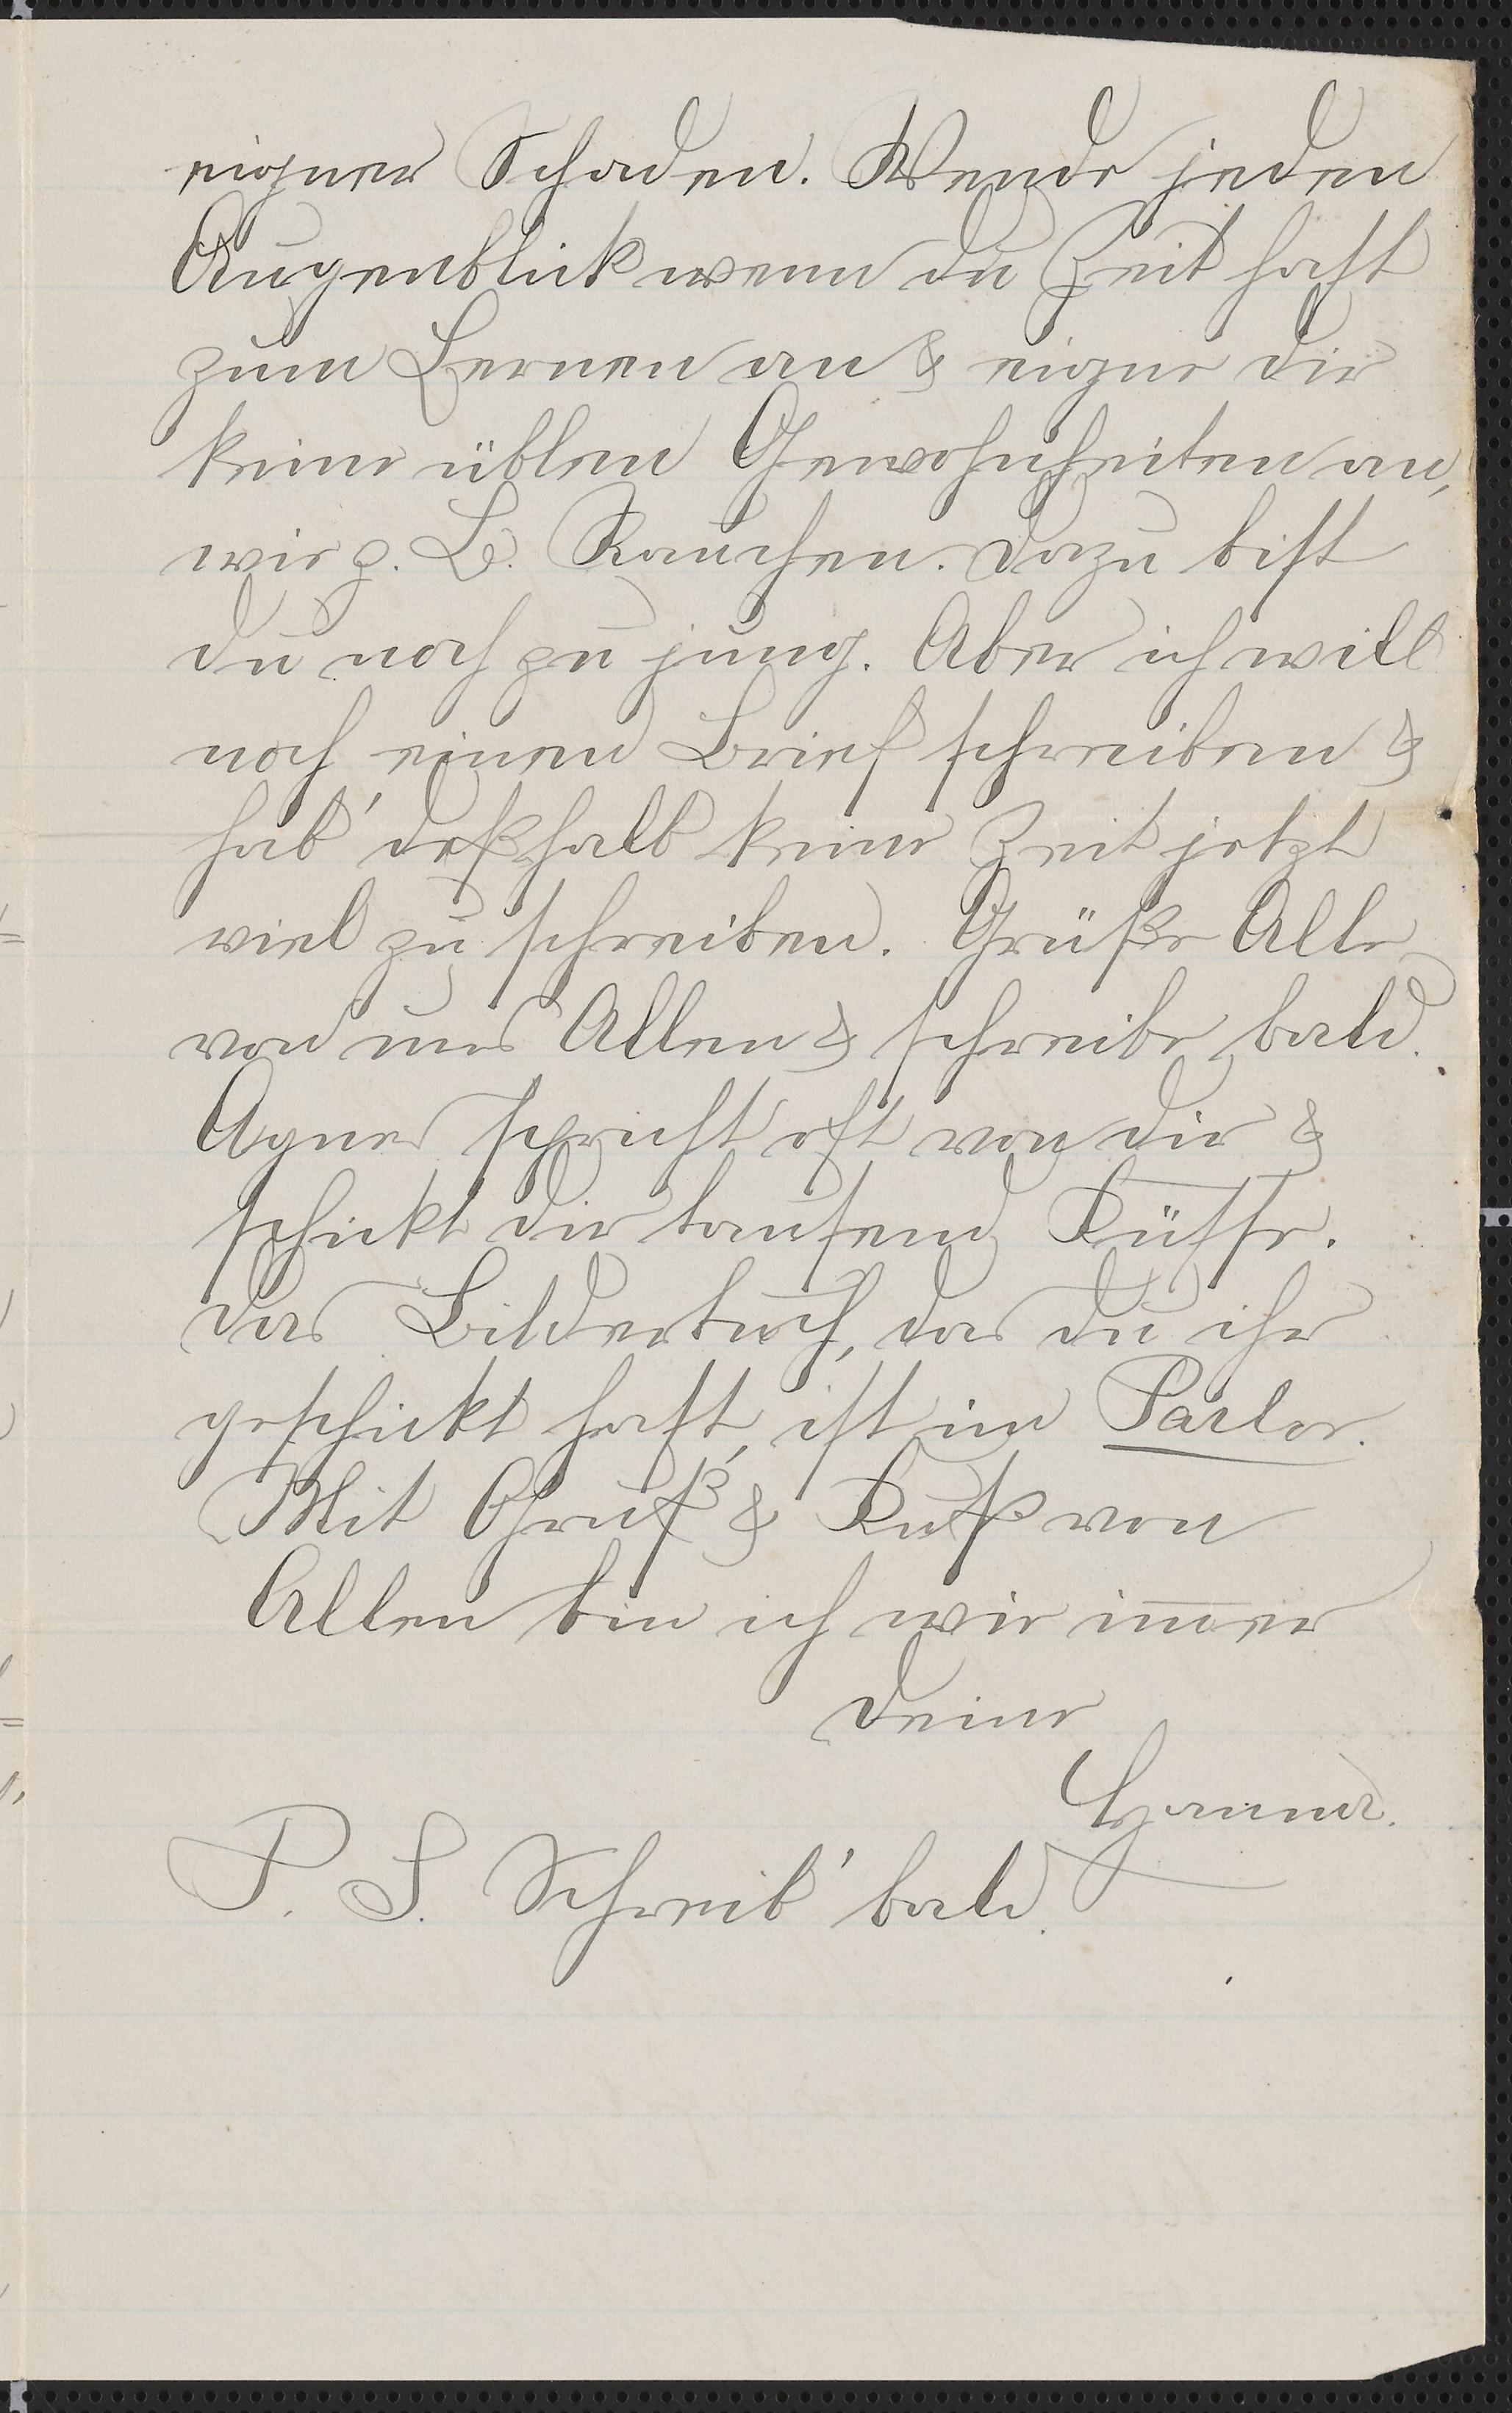 eigner Schaden. Wende jeden
Augenblick wenn du Zeit hast
zum Lernen an & eigne dir
keine üblen Gewohnheiten an,
wie z. B. Rauchen. Dazu bist
du noch zu jung. Aber ich will
noch einen Brief schreiben &
hab' deßhalb keine Zeit jetzt
viel zu schreiben. Grüße Alle
von uns Allen & schreibe bald.
Agnes spricht oft von dir &
schickt dir tausend Küsse.
Das Bilderbuch, das du ihr
geschickt hast, ist im Parlor.
Mit Gruß & Kuß von
Allen bin ich wie im̄er
Deine
Hanna.
P. S. Schreib' bald.